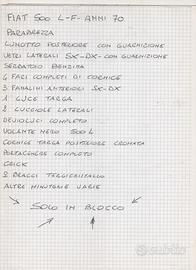 FIAT 500 L-F- ANNI 70
PARABREZZA
LUNOTTO POSTERIORE CON GUARNIZIONE
VETRI LATERALI SX-DX-CON GUARNIZIONE
SERBATOIO BENZINA
4 FARI COMPLETI DI CORNICE
3 FANALINI ANTERIORI SX-DX
1 LUCE TARGA
2 LUCCIOLE LATERALI
DEVIOLUCI COMPLETO
VOLANTE NERO 500 L
CORNICE TARGA POSTERIORE CROMATA
PORTACENERE COMPLETO
CRICK
2 BRACCI TERGICRISTALLO
ALTRE MINUTAGLIE VARIE
SOLO IN BLOCCO
subito